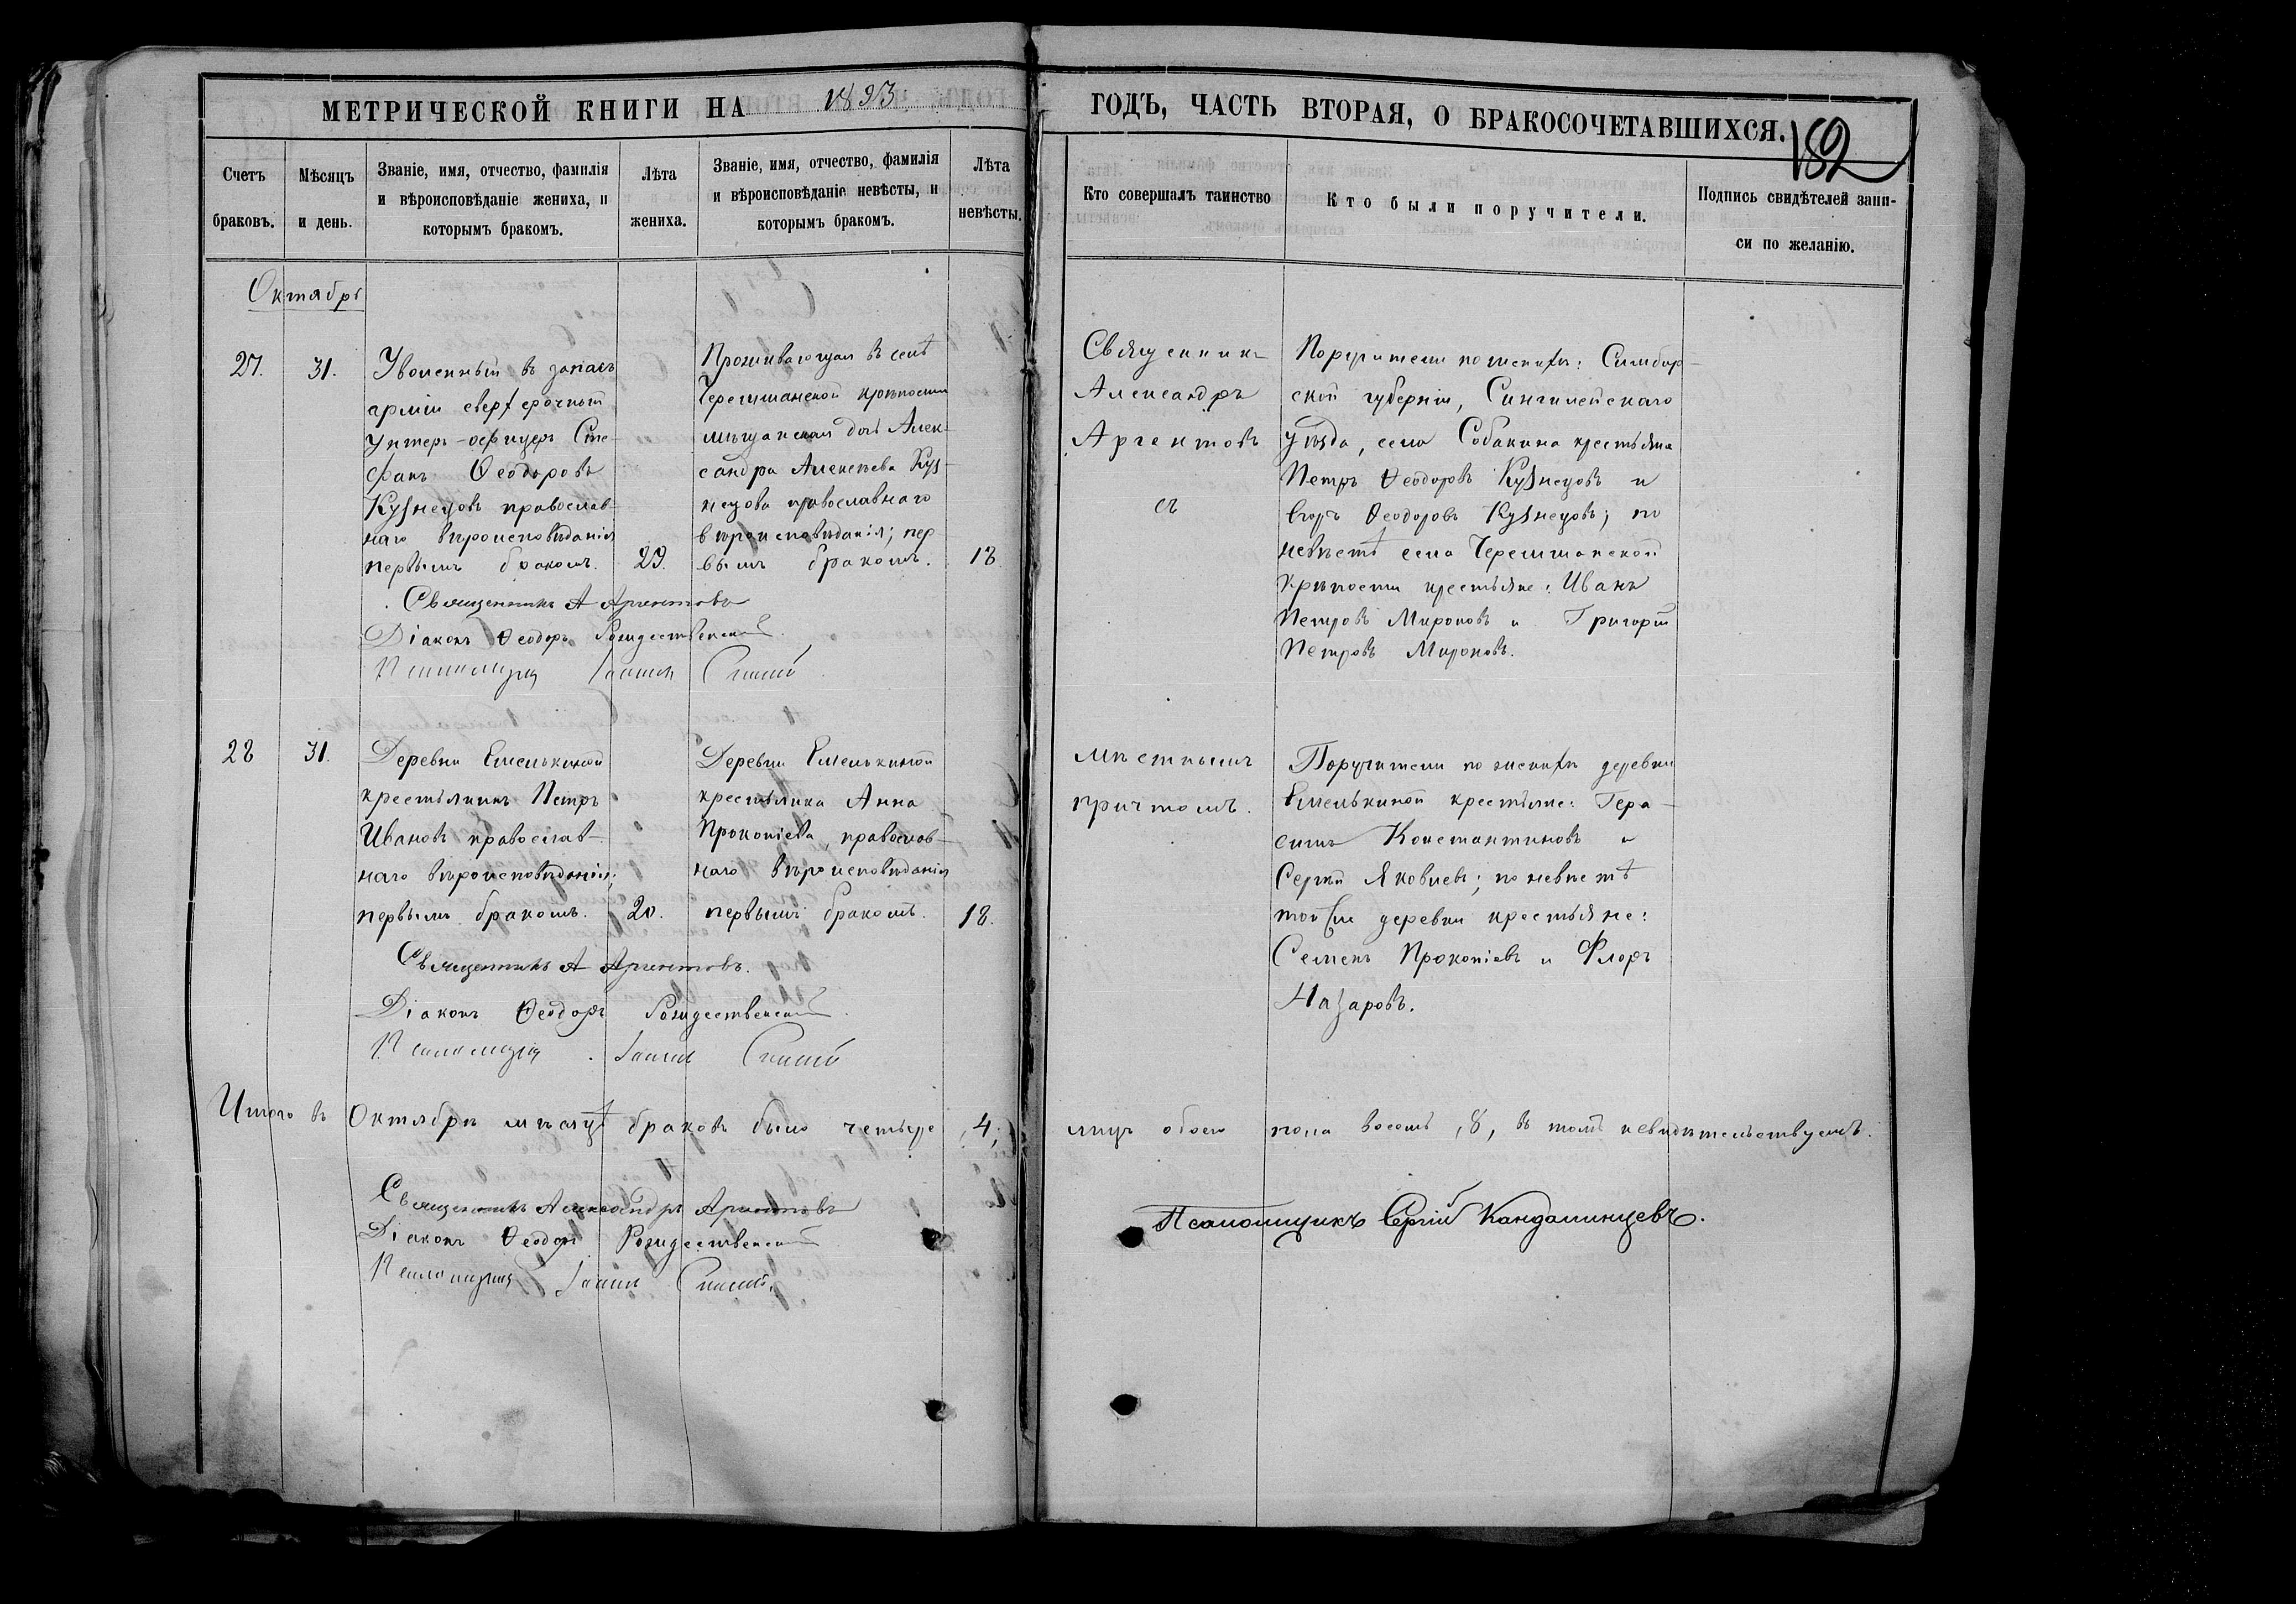 МЕТРИЧЕСКОЙ КНИГИ НА 1893 ГОДЪ, ЧАСТЬ ВТОРАЯ, О БРАКОСОЧЕТАВШИХСЯ.
182
Счетъ браковъ.
Мѣсяцъ и день.
Званіе, имя, отчество, фамилія
и вѣроисповѣданіе жениха, и
которымъ бракомъ.
Лѣта
жениха.
Званіе, имя, отчество, фамилія
и вѣроисповѣданіе невѣсты, и
которымъ бракомъ.
Лѣта
невѣсты.
Кто совершалъ таинство
Кто были поручители.
Подпись свидѣтелей запи-
си по желанію.
Октябрь
27. 31.
Уволенный въ запасъ
арміи сверхсрочный
унтеръ-офицеръ Сте-
фанъ Ѳеодоровъ
Кузнецовъ православ-
наго вѣроисповѣданія
первымъ бракомъ.
29.
Проживающая въ селѣ
Черемшанской крѣпости
мѣщанская дочь Алек-
сандра Алексѣева Куз-
нецова православнаго
вѣроисповѣданія; пер-
вымъ бракомъ.
18
Священникъ
Александръ
Аргентовъ
съ
Поручители по женихѣ: Симбир-
ской губерніи, Сингилейскаго
уѣзда, села Собакина крестьяна
Петръ Ѳеодоровъ Кузнецовъ и
Егоръ Ѳеодоровъ Кузнецовъ; по
невѣстѣ села Черемшанской
крѣпости крестьяне: Иванъ
Петровъ Мироновъ и Григорій
Петровъ Мироновъ.
Священникъ А Аргентовъ
Діаконъ Ѳеодоръ Рождественскій.
Псаломщикъ
28 31.
Деревни Емелькиной
крестьянинъ Петръ
Ивановъ православ-
наго вѣроисповѣданія;
первымъ бракомъ.
20.
Деревни Емелькиной
крестьянка Анна
Прокопіева, православ-
наго вѣроисповѣданія
первымъ бракомъ.
18.
мѣстнымъ
причтомъ.
Поручители по женихѣ деревни
Емелькиной крестьяне: Гера-
симъ Константиновъ и
Сергѣй Яковлевъ; по невѣстѣ
той же деревни крестьяне:
Семенъ Прокопіевъ и Флоръ
Назаровъ.
Священникъ А Аргентовъ.
Діаконъ Ѳеодоръ Рождественскій.
Псаломщикъ
Итого въ Октябрѣ мѣсяцѣ браковъ было четыре, 4, лицъ обоего пола восемь, 8, въ томъ и свидѣтельствуемъ.
Священникъ Александръ Аргентовъ
Діаконъ Ѳеодоръ Рождественскій
Псаломщикъ
Псаломщикъ Сергій Кандалинцевъ.